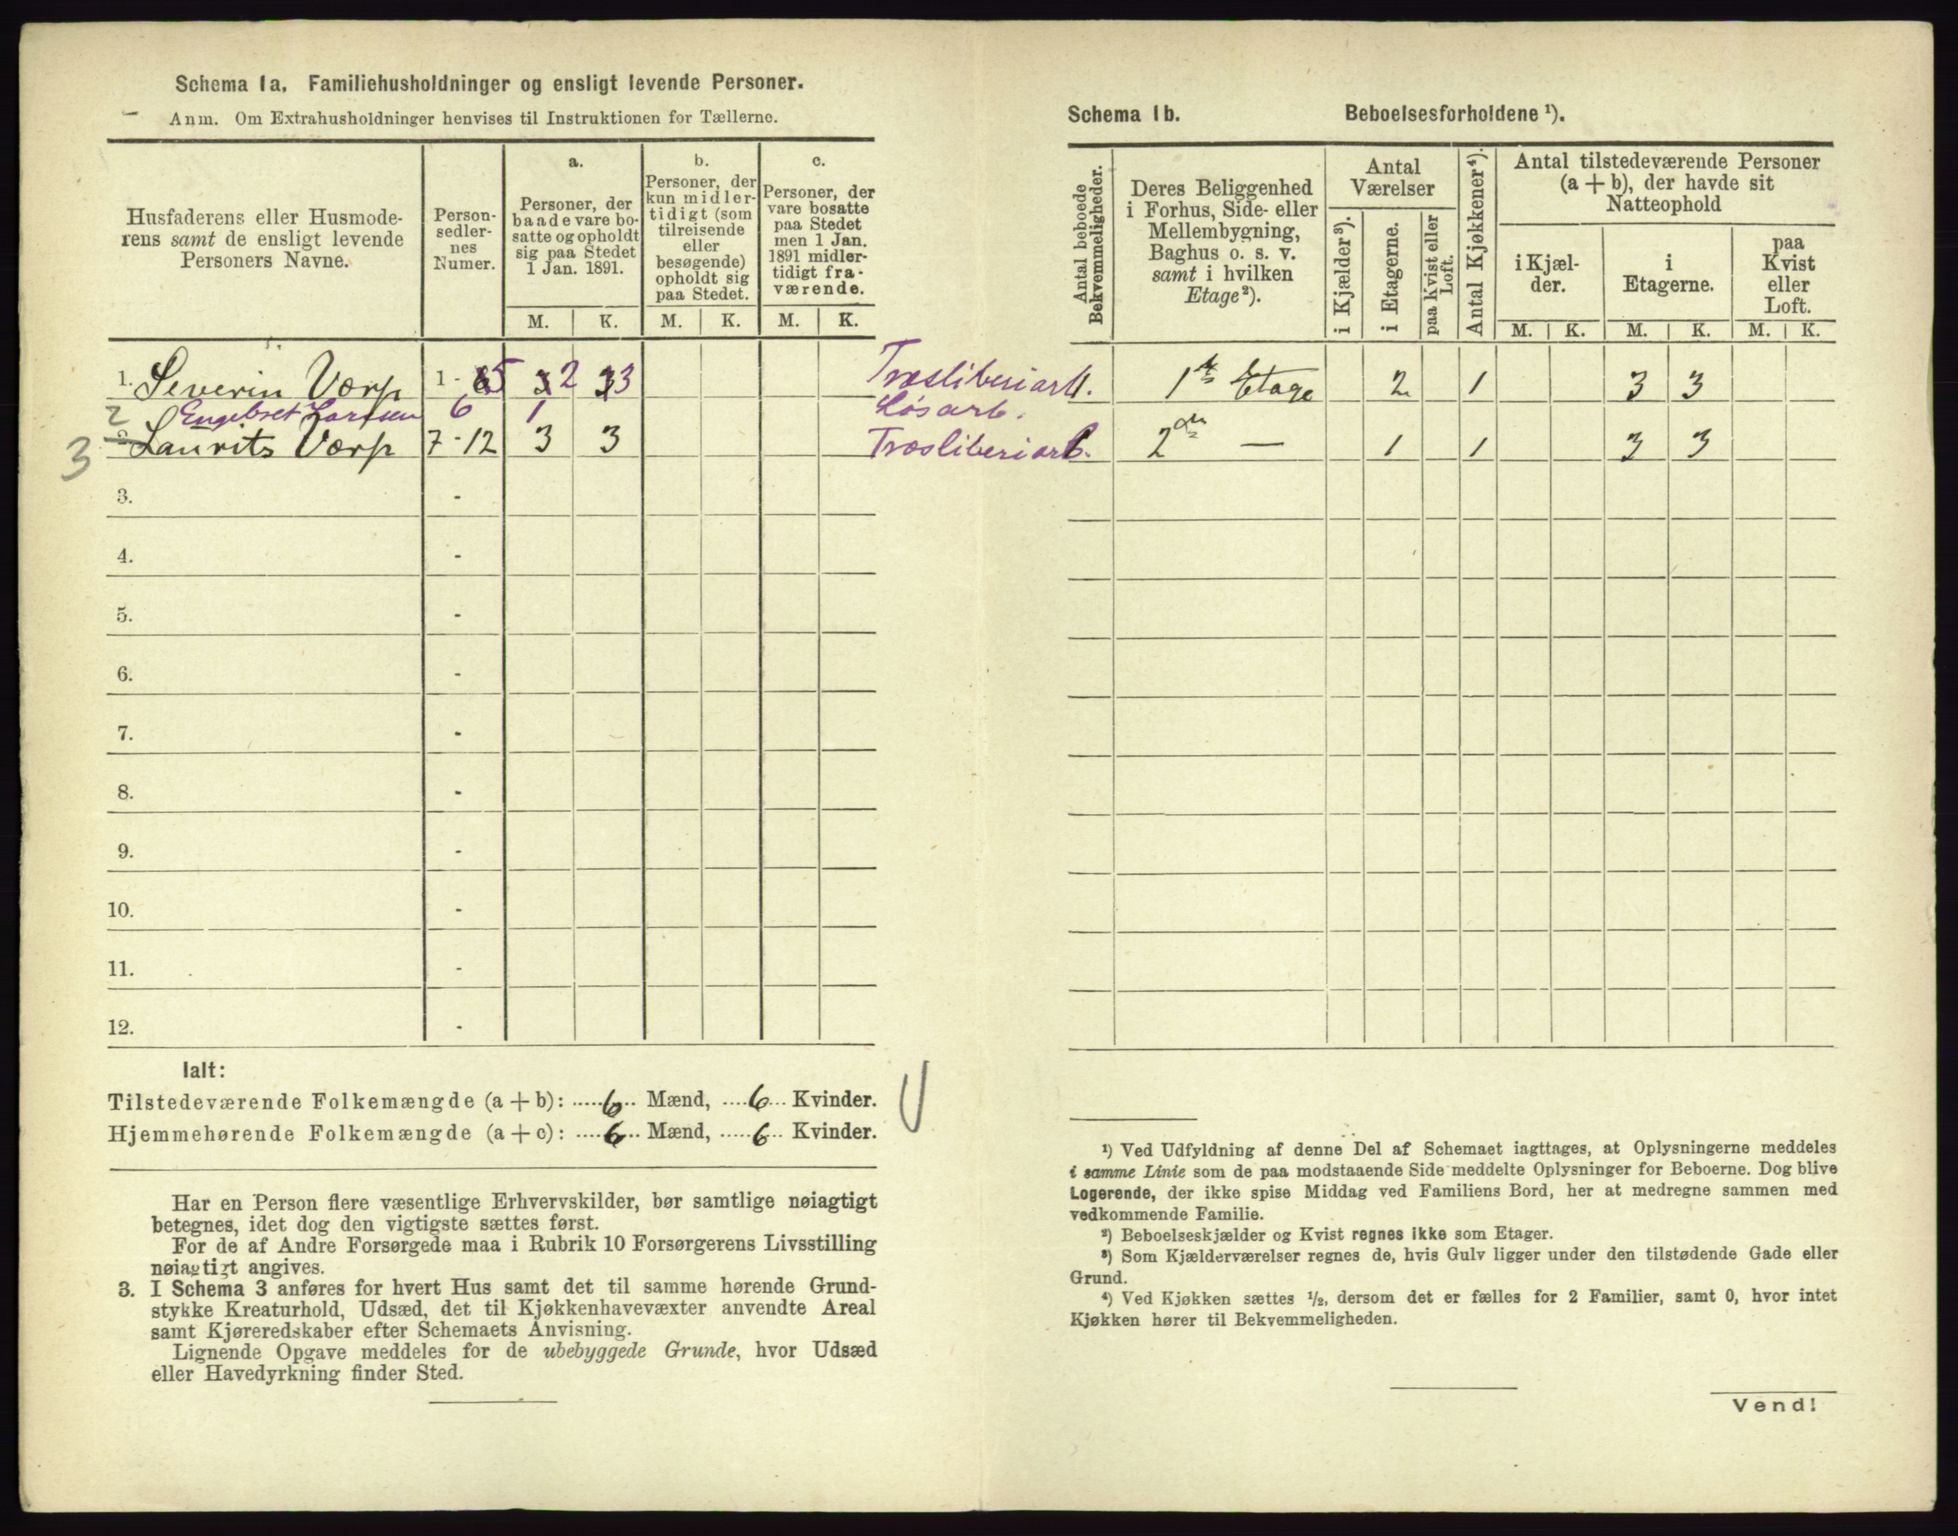 Schema 1a. Familiehusholdninger og ensligt levende Personer.
Anm. Om Extrahusholdninger henvises til Instruktionen for Tællerne.
Husfaderens eller Husmode-
rens samt de ensligt levende
Personers Navne.
Person-
sedler-
nes
Numer.
a.
Personer, der
baade vare bo-
satte og opholdt
sig paa Stedet
1 Jan. 1891.
b.
Personer, der
kun midler-
tidigt (som
tilreisende
eller
besøgende)
opholdt sig
paa Stedet.
c.
Personer, der
vare bosatte
paa Stedet
men 1 Jan.
1891 midler-
tidigt fra-
værende.
M. K. M. K. M. K.
1. Severin Værp 1 - 5 2 3 Træsliberiarb.
2 Engebret Larssen 6 1 Løsarb.
3 Laurits Værp 7 - 12 3 3 Træsliberiarb.
3. -
4. -
5. -
6. -
7. -
8. -
9. -
10. -
11. -
12. -
Ialt:
Tilstedeværende Folkemængde (a + b): 6 Mænd, 6 Kvinder.
Hjemmehørende Folkemængde (a + c): 6 Mænd, 6 Kvinder.
Har en Person flere væsentlige Erhvervskilder, bør samtlige nøiagtigt
betegnes, idet dog den vigtigste sættes først.
For de af Andre Forsørgede maa i Rubrik 10 Forsørgerens Livsstilling
nøiagtigt angives.
3. I Schema 3 anføres for hvert Hus samt det til samme hørende Grund-
stykke Kreaturhold, Udsæd, det til Kjøkkenhavevæxter anvendte Areal
samt Kjøreredskaber efter Schemaets Anvisning.
Lignende Opgave meddeles for de ubebyggede Grunde, hvor Udsæd
eller Havedyrkning finder Sted.
Schema 1b. Beboelsesforholdene ¹).
Antal beboede
Bekvemmeligheder.
Deres Beliggenhed
i Forhus, Side- eller
Mellembygning,
Baghus o. s. v.
samt i hvilken
Etage²).
Antal
Værelser
i Kjælder³).
i Etagerne.
paa Kvist eller
Loft.
Antal Kjøkkener⁴).
Antal tilstedeværende Personer
(a + b), der havde sit
Natteophold
i Kjæl-
der.
i
Etagerne.
paa
Kvist
eller
Loft.
M. K. M. K. M. K.
1. 1ste Etage 2 1 3 3
2den — 1 1 3 3
¹) Ved Udfyldning af denne Del af Schemaet iagttages, at Oplysningerne meddeles
i samme Linie som de paa modstaaende Side meddelte Oplysninger for Beboerne. Dog blive
Logerende, der ikke spise Middag ved Familiens Bord, her at medregne sammen med
vedkommende Familie.
²) Beboelseskjælder og Kvist regnes ikke som Etager.
³) Som Kjælderværelser regnes de, hvis Gulv ligger under den tilstødende Gade eller
Grund.
⁴) Ved Kjøkken sættes ½, dersom det er fælles for 2 Familier, samt 0, hvor intet
Kjøkken hører til Bekvemmeligheden.
Vend!